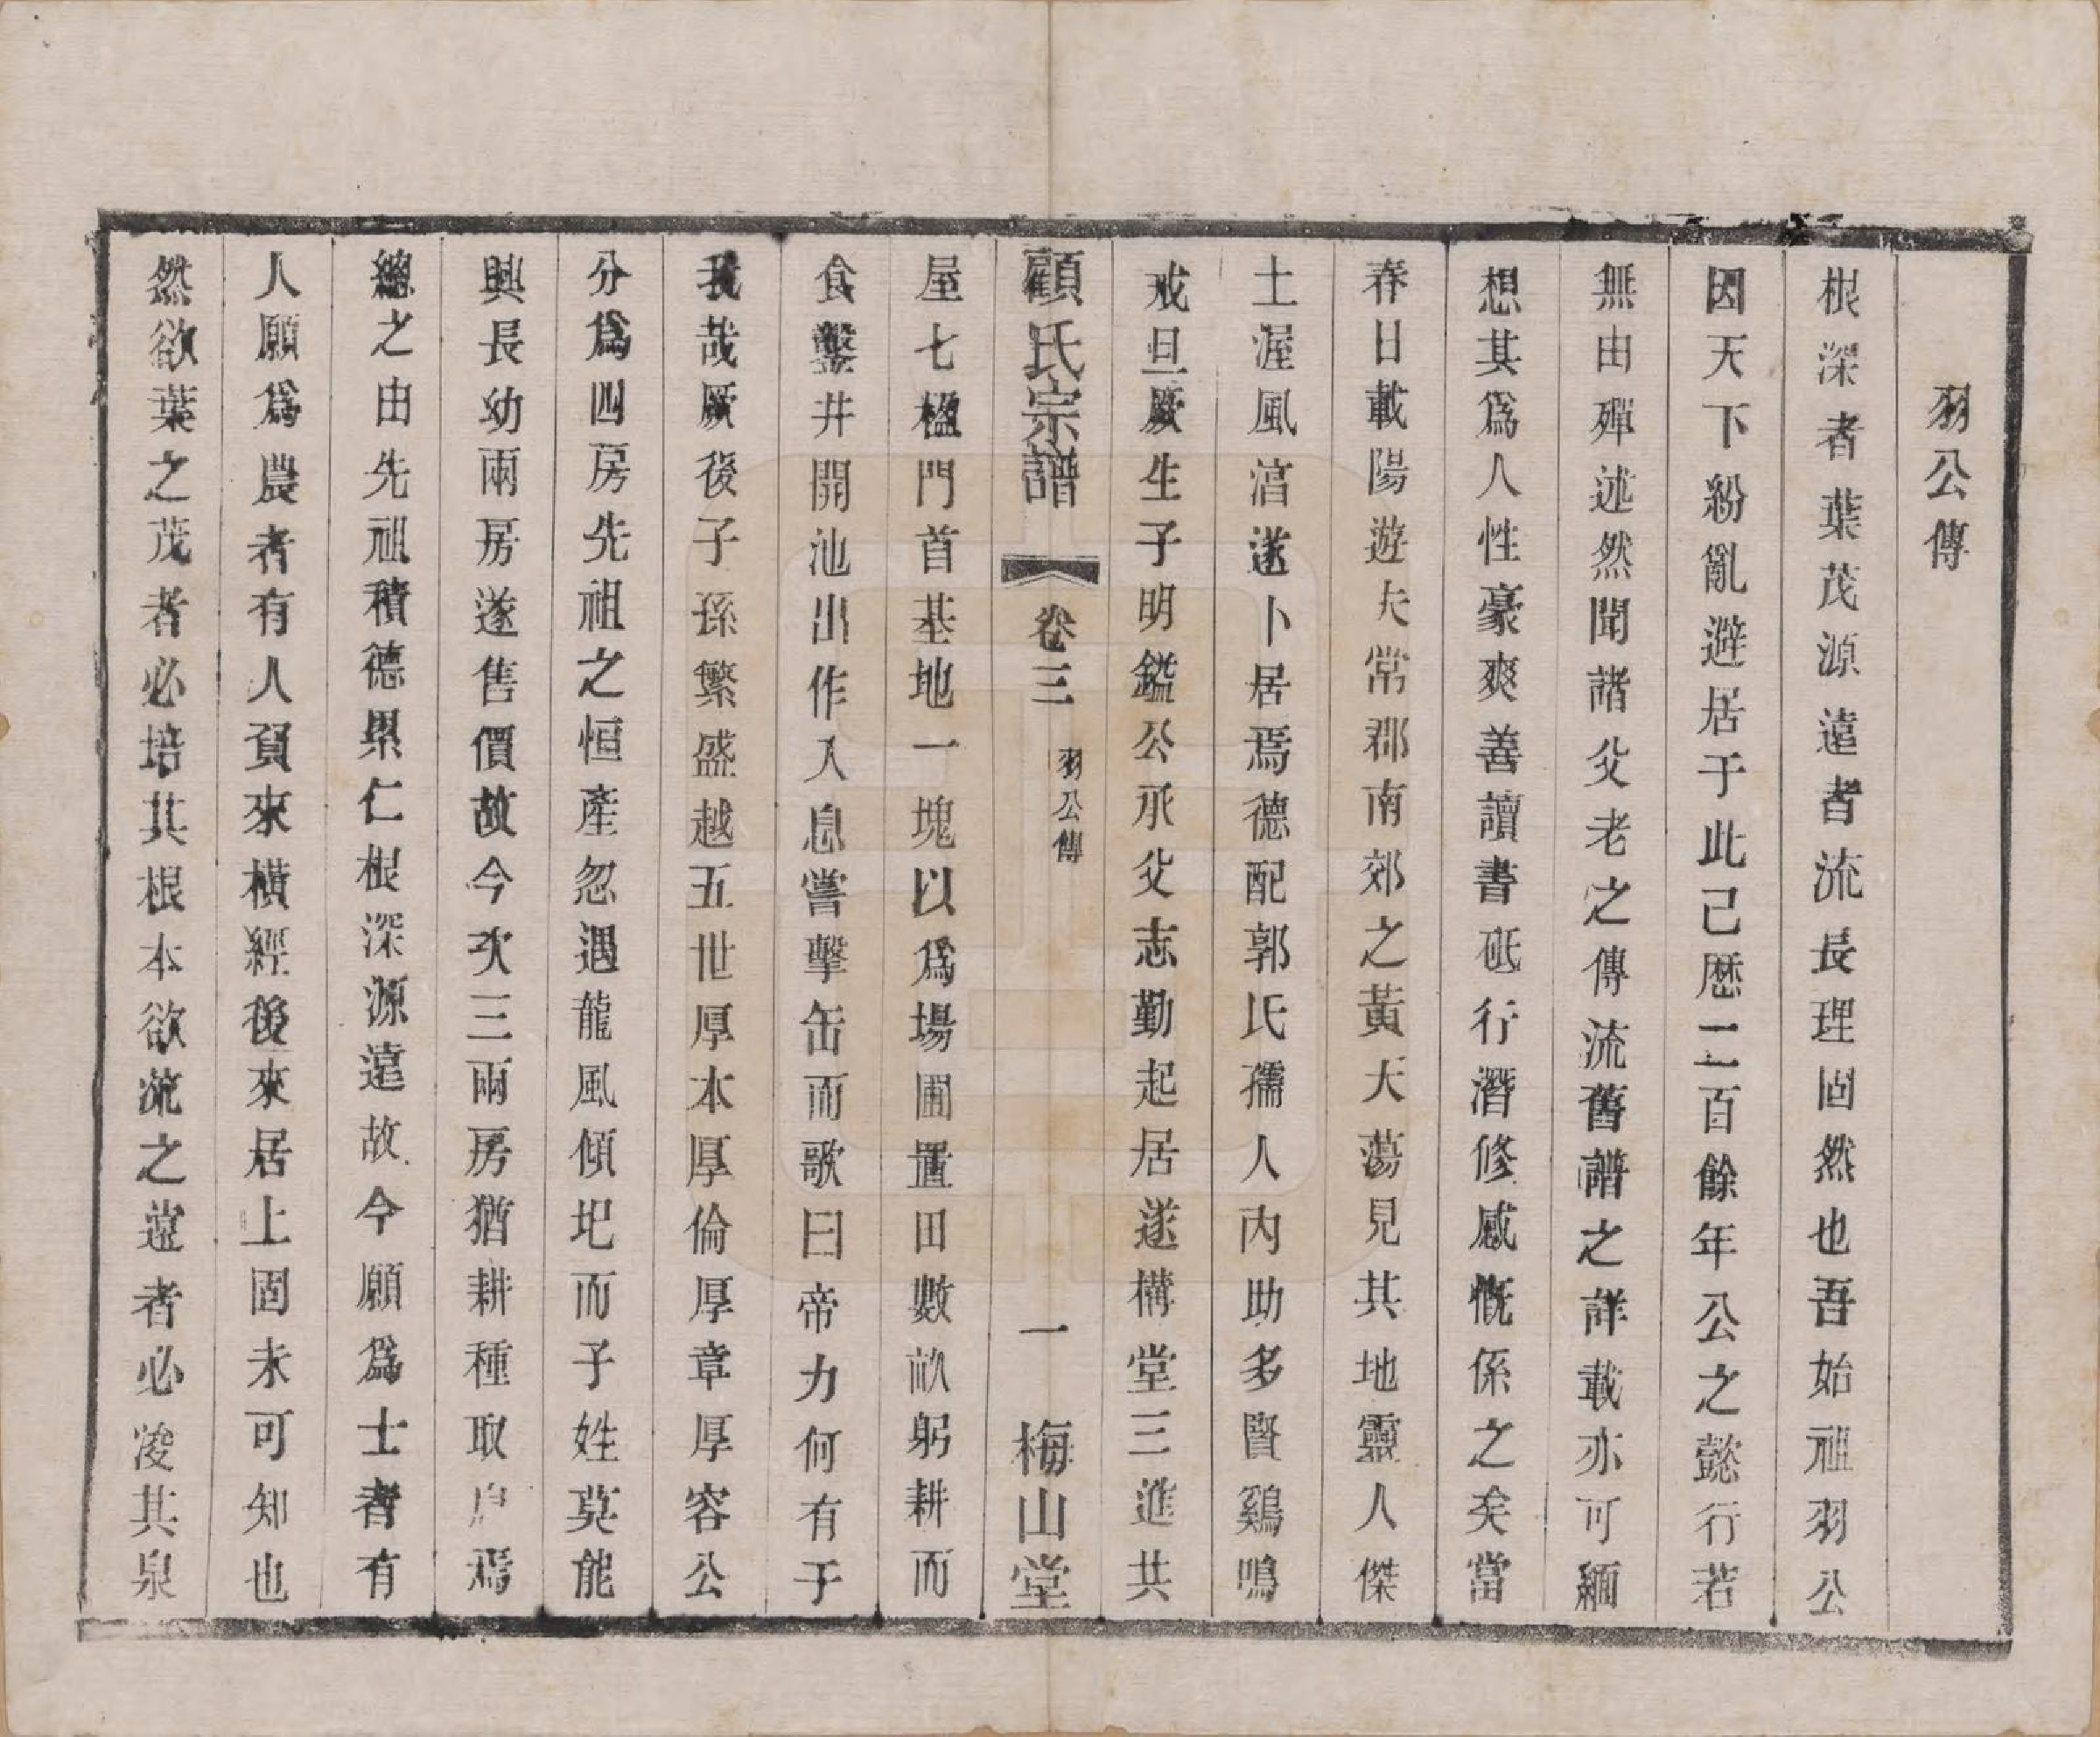 羽公傳
根深者葉茂源遠者流長理固然也吾始祖羽公
因天下紛亂避居于此已歷二百餘年公之懿行若
無由殫述然聞諸父老之傳流舊譜之詳載亦可緬
想其爲人性豪爽善讀書砥行潛修感慨係之矣當
春日載陽遊夫常郡南郊之黃天蕩見其地靈人傑
土渥風湻遂卜居焉德配郭氏孺人內助多賢鷄鳴
戒旦厥生子明鎰公承父志勤起居遂構堂三進共
顧氏宗譜 卷三 羽公傳 一 梅山堂
屋七楹門首基地一塊以爲場圃置田數畝躬耕而
食鑿井開池出作入息嘗擊缶而歌曰帝力何有于
我哉厥後子孫繁盛越五世厚本厚倫厚章厚容公
分爲四房先祖之恒產忽遇龍風傾圮而子姓莫能
興長幼兩房遂售價故今次三兩房猶耕種取焉
總之由先祖積德累仁根深源遠故今願爲士者有
人願爲農者有人負來橫經後來居上固未可知也
然欲葉之茂者必培其根本欲流之遠者必浚其泉